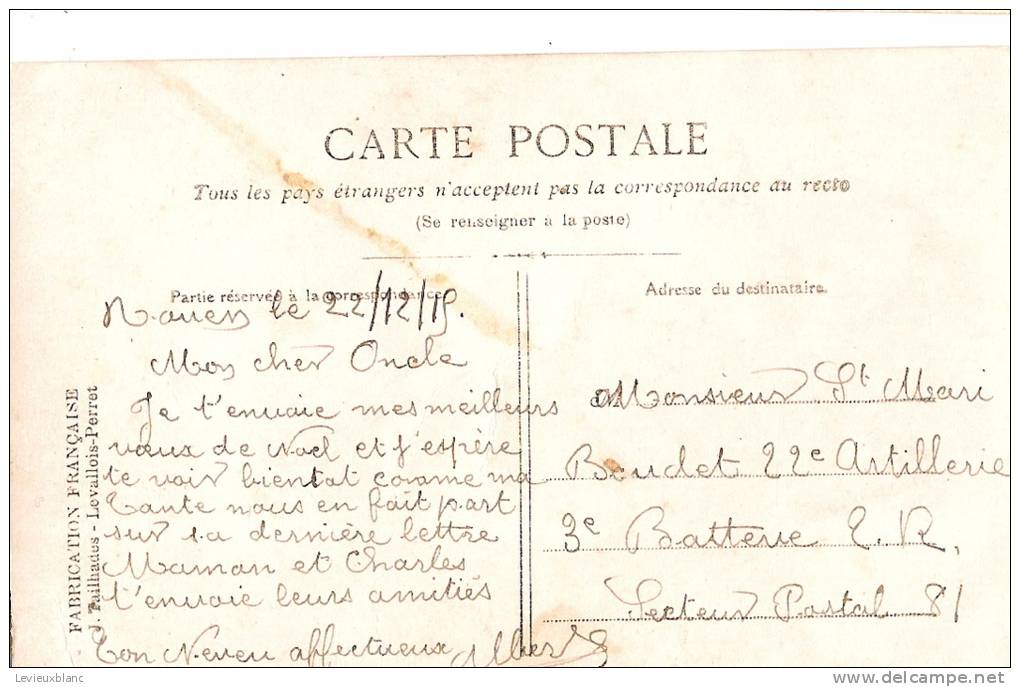 CARTE POSTALE
Tous les pays étrangers n'acceptent pas la correspondance au recto
(Se renseigner a la poste)
Partie réservée à la correspondance
Adresse du destinataire.
FABRICATION FRANÇAISE
J. Tailhades - Levallois-Perret
Rouen le 22/12/15.
Mon cher Oncle
Je t'envoie mes meilleurs
vœux de Noel et j'espère
te voir bientot comme ma
Tante nous en fait part
sur sa dernière lettre
Maman et Charles
t'envoie leurs amitiés
Ton Neveu affectueux Albert
Monsieur St Mari
Boudet 22e Artillerie
3e Batterie E. R.
Secteur Postal 81
Levieuxblanc
delcampe.net